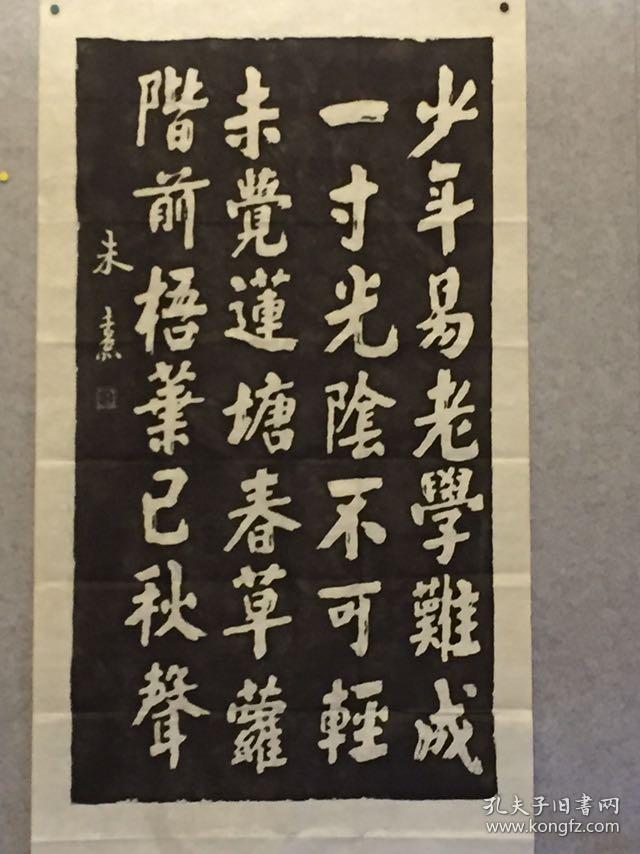 少年易老學難成
一寸光陰不可輕
未覺蓮塘春草蘿
階前梧葉已秋聲
朱熹
孔夫子旧书网
www.kongfz.com